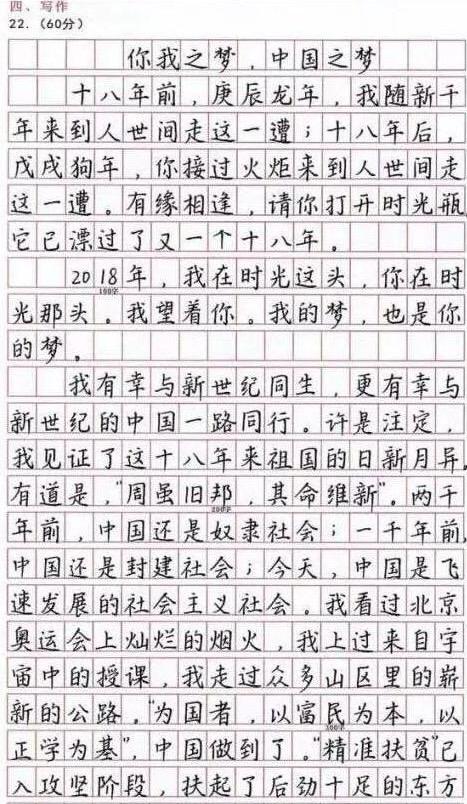 四、写作
22.（60分）
你我之梦，中国之梦
十八年前，庚辰龙年，我随新千
年来到人世间走这一遭；十八年后，
戊戌狗年，你接过火炬来到人世间走
这一遭。有缘相逢，请你打开时光瓶
它已漂过了又一个十八年。
2018年，我在时光这头，你在时
100字
光那头。我望着你。我的梦，也是你
的梦。
我有幸与新世纪同生，更有幸与
新世纪的中国一路同行。许是注定，
我见证了这十八年来祖国的日新月异。
有道是，“周虽旧邦，其命维新”。两千
200字
年前，中国还是奴隶社会；一千年前，
中国还是封建社会；今天，中国是飞
速发展的社会主义社会。我看过北京
奥运会上灿烂的烟火，我上过来自宇
宙中的授课，我走过众多山区里的崭
新的公路。“为国者，以富民为本，以
300字
正学为基”，中国做到了。“精准扶贫”已
入攻坚阶段，扶起了后劲十足的东方